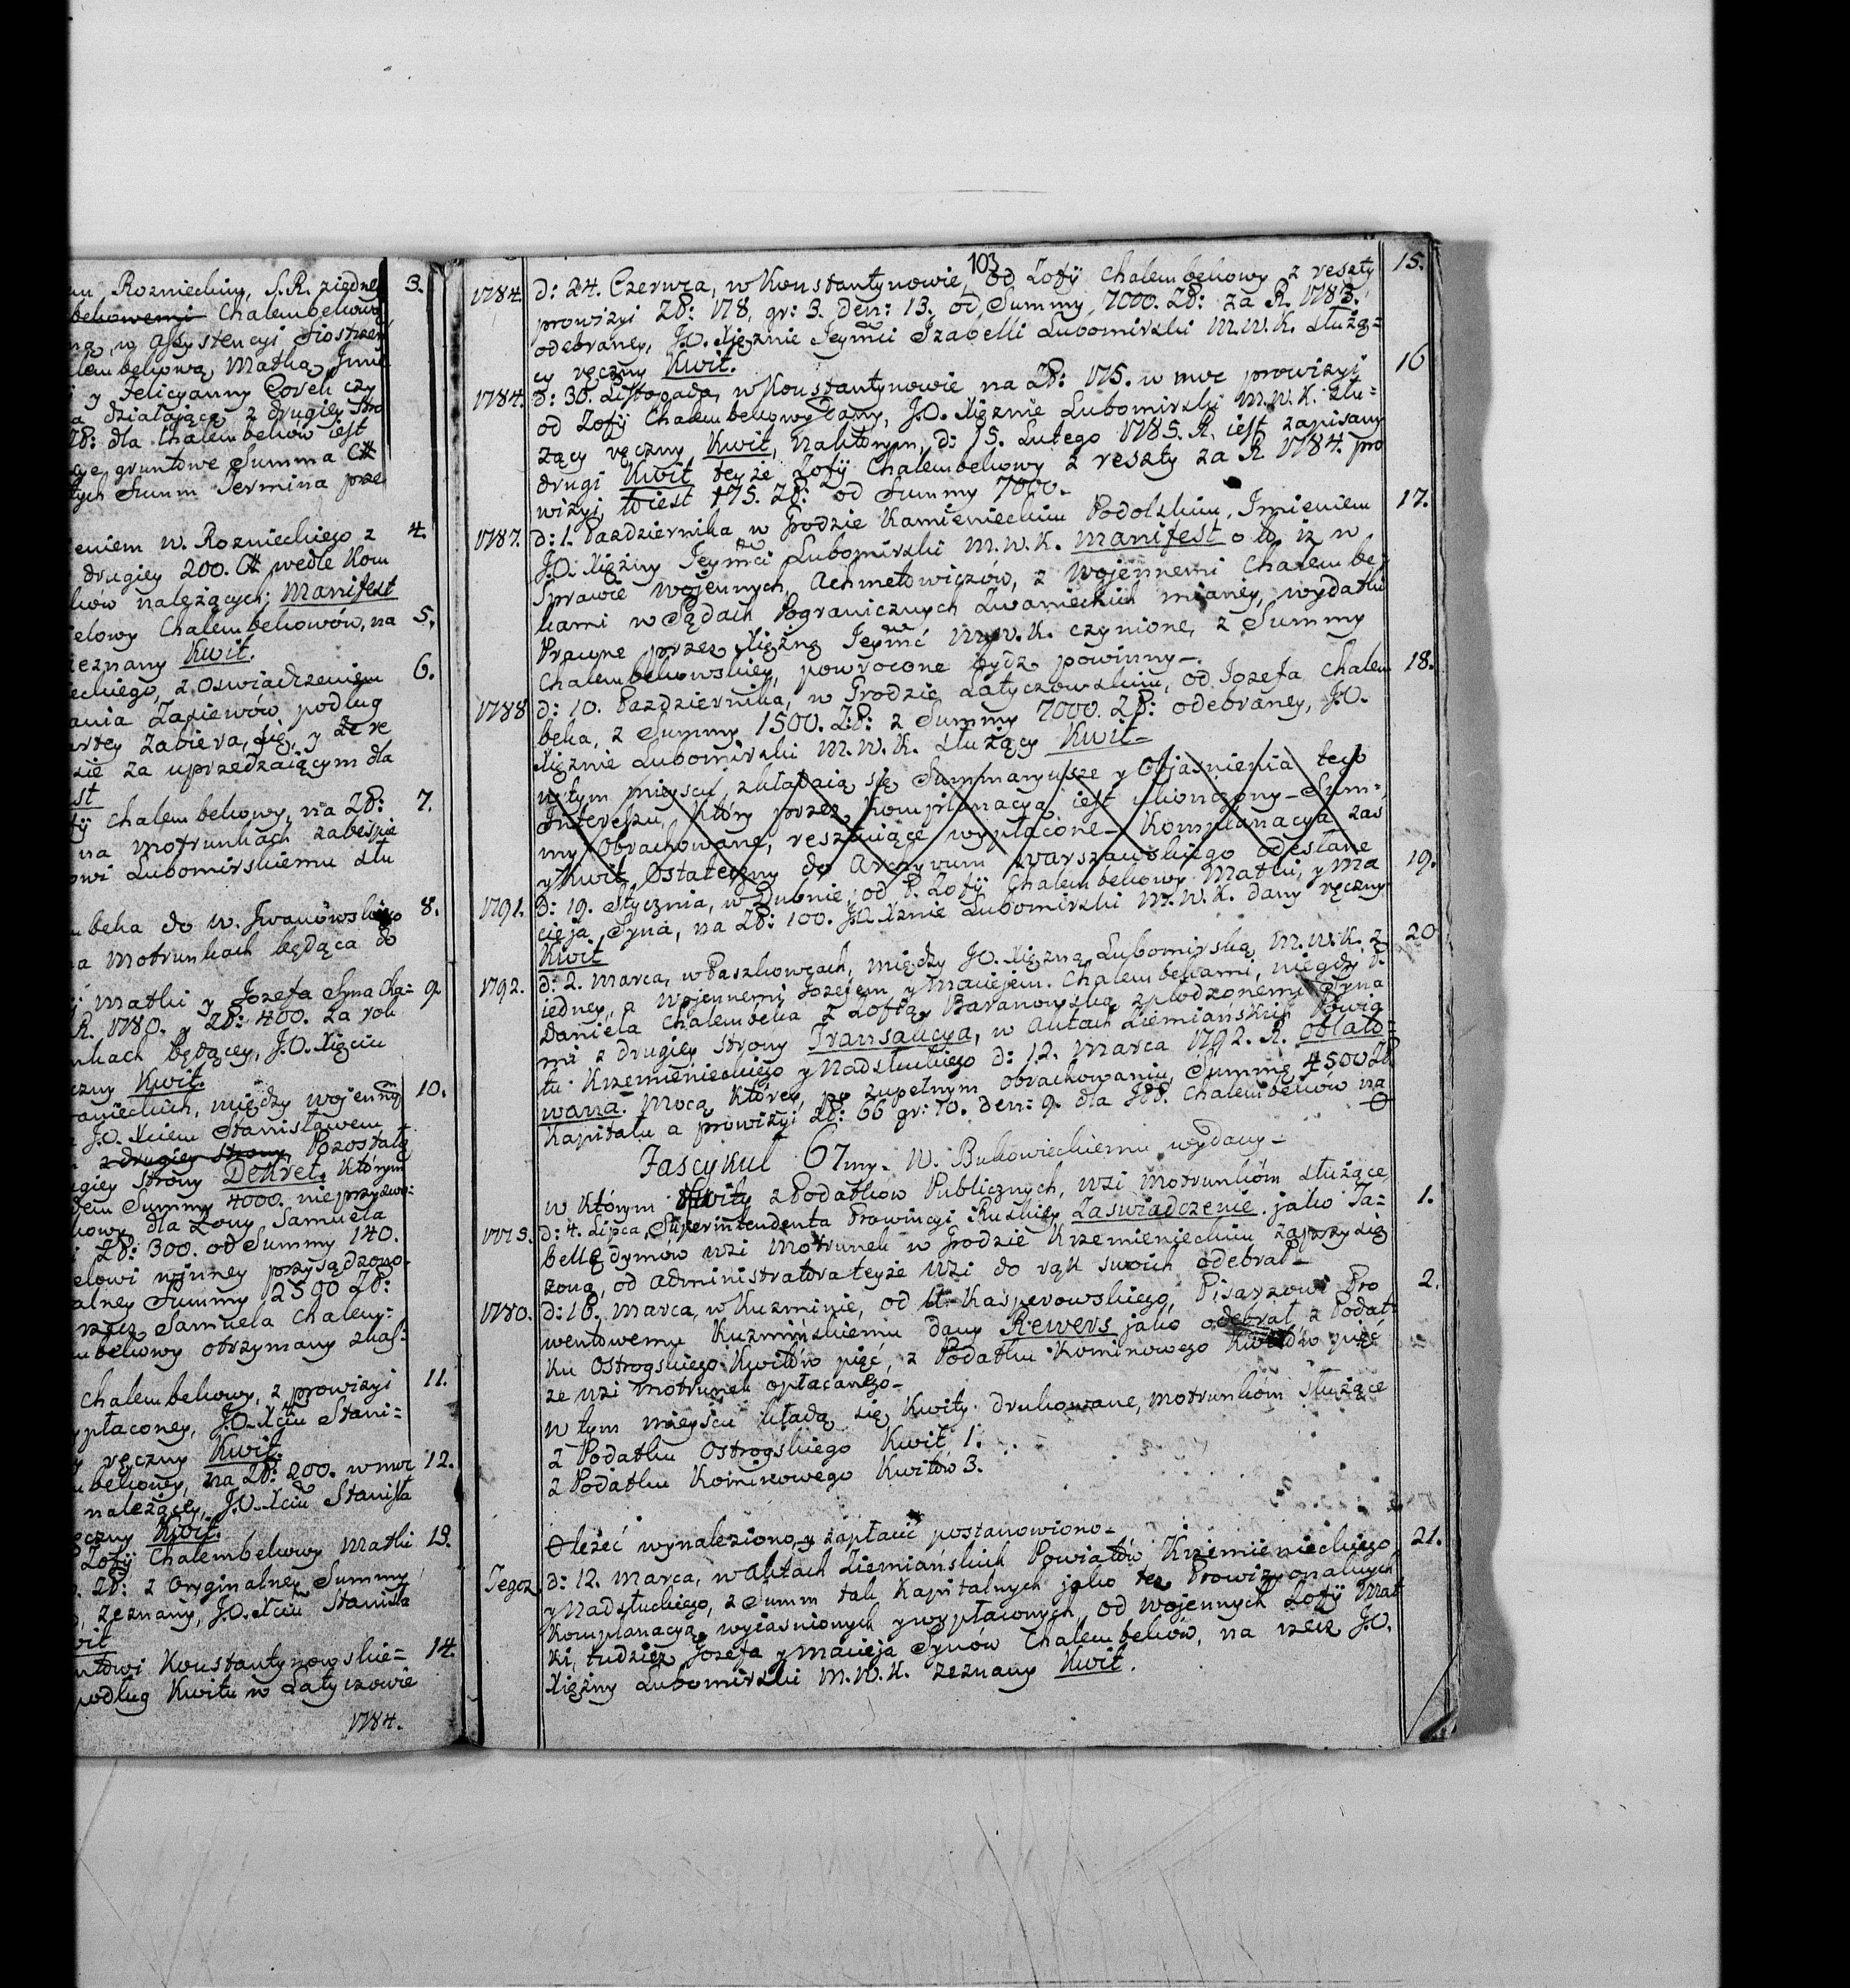 em Roznieckim, S.R. ziedney 3.
bekowemi Chalembekową
ną, w Assystencyi Siostrzeń
lembekową, Matką, Jmie
i y Felicyanny Corek czy
a działającą, z drugiey stro
ZP: dla Chalembeków iest
cye gruntowe Summa C#
tych Summ Termina prze
eniem W. Roznieckiego z 4.
drugiey 200. C# wedle Kom
ków należących; Manifest
elowy Chalembekowów, na 5.
zeznany Kwit.
eckiego, z Oswiadczeniem 6.
ania Zasiewów podług
artey zabiera, się, y że te
sie za uprzedzaiącym dla
st
fÿ Chalembekowy, na ZP: 7.
na Motrunkach zabespie
owi Lubomirskiemu słu
beka do W. Jwanowskiego 8.
a Motrunkach będąca do
y Matki y Jozefa Syna Cha= 9.
R. 1780. y ZP: 400. za rok
nkach będącey, J.O. Xięciu
czny Kwit.
anieckich, między wojennÿ 10.
J.O. Xciem Stanisławem
z drugiey strony, Pozostałą
ugiey strony Dekret, którym
dem Summy 4000. nieprzyzwo:
kowy dla Zony Samuela
i ZP: 300. od Summy 140.
elowi winney przysądzono.
alney Summy 2500 ZP:
rzecz Samuela Chalem:
mbekowy otrzymany skas-
Chalembekowy, z prowizyi 11.
ypłaconey, J.O. Xciu Stani=
y ręczny Kwit.
mbekowey, na ZP: 200. w moc 12.
należącey, J.O. Xciu Stanisła
ęczny Kwit.
Zofÿ Chalembekowy Matki 13.
ZP: z Oryginalney Summy
zeznany, J.O. Xciu Stanisła
wit
ntowi Konstantynowskie= 14.
podług Kwitu w Latyczowie
1784.
103
1784. d: 24. Czerwca, w Konstantynowie, od Zofÿ Chalembekowy z reszty 15.
prowizyi ZP: 178, gr: 3. den: 13. od Summy 7000. ZP: za R. 1783.
odebraney, J.O. Xiężnie Jeymci Izabelli Lubomirski M.W.K. służą=
cy ręczny Kwit.
1784. d: 30. Listopada, w Konstantynowie na ZP: 175. w moc prowizyi 16
od Zofÿ Chalembekowy dany, J.O. Xiężnie Lubomirski M.W.K. słu=
żący ręczny Kwit, na którym, d: 15. Lutego 1785. R. iest zapisany
drugi Kwit teyże Zofÿ Chalembekowy z reszty za R 1784. pro
wizyi, to iest 175. ZP: od Summy 7000.-
1787. d: 1. Pazdziernika w Grodzie Kamienieckim Podolskim, Imieniem 17.
J.O. Xiężny Jeymci Lubomirski M.W.K. Manifest o to, iż w
Sprawie wojennych Achmetowiczów, z Wojennemi Chalembe
kami w Sądach Pograniczných Zwanieckich mianey, wydatki
Prawne przez Xiężną Jeymć M.W.K. czynione, z Summy
Chalembekowskiey, powrocone bydz powinny-.
1788 d: 10. Pazdziernika, w Grodzie Latyczowskim, od Jozefa Chalem 18.
beka, z Summy 1500. Z:P: z Summy 7000. ZP: odebraney, J.O.
Xiężnie Lubomirski M.W.K. służący Kwit-
w tym mieyscu zkładzią się Summaryusze y Objaśnienia tego
Interessu, Który przez Komplanacyą iest ukończony- Sum=
my Obrachowane, resztuiące wypłacone- Komplanacya zaś
y Kwit Ostateczny do Archywum Warszawskiego odesłane
1791. d: 19. Stycznia, w Dubnie; od P. Zofÿ Chalembekowy Matki, y Ma 19.
cieja Syna, na ZP: 100. J.O. Xżnie Lubomirski M.W.K. dany ręczny
Kwit
1792. d: 2. Marca, w Paszkowcach, między J.O. Xiężną Lubomirską M.W.K. z 20
iedney, a Wojennemi Jozefem y Maciejem Chalembekami, niegdy P.
Daniela Chalembeka z Zofią Baranowską spłodzonemi Syna
mi z drugiey strony Transakcya, w Aktach Ziemiańskich Powia
tu Krzemienieckiego y Nadsłuckiego d: 12. Marca 1792. R. oblato=
wana. Mocą którey, po zupełnym obrachowaniu, Summę 4500 ZP
Kapitału a prowizyi ZP: 66 gr: 10. den: 9. dla JPP. Chalembeków na
Fascykuł 67my. W. Bukowieckiemu wydany-
w którym Kwity z Podatkow Publicznych, wsi Motrunkóm służące
1775. d: 4. Lipca, Superintendenta Prowincyi Ruskiey Zaswiadczenie, jako Ta= 1.
bellę dymów wsi Motrunek w Grodzie Krzemienieckim zaprzysię
zoną, od Administratora teyże Wsi do rąk swoich odebrał-
1780. d: 18. Marca, w Kuzminie, od Kasperowskiego, Pisarzowi Pro 2.
wentowemu Kuzmińskiemu dany Rewers jako odebrał z Podat
ku Ostrogskiego Kwitów pięć, z Podatku Kominowego Kwitów pięć
ze wsi Motrunek opłacanego-
w tym mieyscu kładą się Kwity drukowane, Motrunkóm służące
z Podatku Ostrogskiego Kwit 1.
z Podatku Kominowego Kwitów 3.
leżeć wynaleziono, y zapłacić postanowiono-
Tegoż d: 12. Marca, w Aktach Ziemiańskich Powiatów Krzemienieckiego 21.
y Nadsłuckiego, z Summ tak Kapitalnych jako też Prowizyonalnych
Komplanacyą wyiasnionych y wypłaconych, od Wojennych Zofÿ Mat
ki, tudzież Jozefa y Macieja Synów Chalembeków, na rzecz J.O.
Xiężny Lubomirski M.W.K. zeznany Kwit.